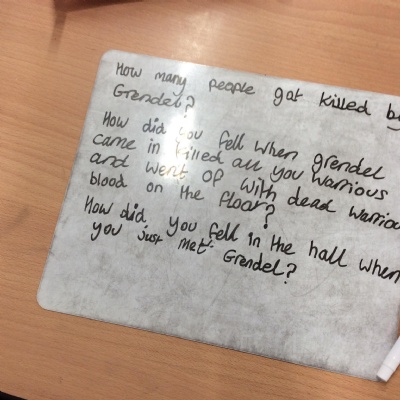 How many people got killed by
Grendel?
How did you fell when grendel
came in killed all you warrious
and went of with dead warriou
blood on the floor?
How did you fell in the hall when
you just met Grendel?